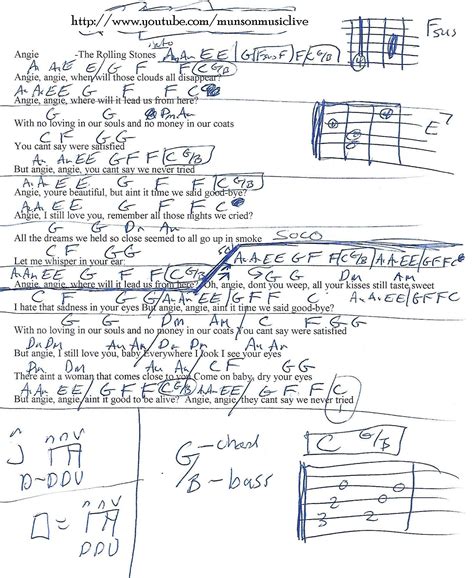 http://www.youtube.com/munsonmusiclive
intro Fsus
Angie -The Rolling Stones Am Am E E | G | Fsus F | C G/B |
Am Am E E / G F F (C G/B)
Angie, angie, when will those clouds all disappear?
Am Am E E G F F C
Angie, angie, where will it lead us from here?
G G Dm Am
With no loving in our souls and no money in our coats
E7
C F G G
You cant say were satisfied
Am Am E E G F F C G/B
But angie, angie, you cant say we never tried
Am Am E E G F F C G/B
Angie, youre beautiful, but aint it time we said good-bye?
Am Am E E G F F C
Angie, I still love you, remember all those nights we cried?
G G Dm Am
All the dreams we held so close seemed to all go up in smoke SOLO
C F G G
Let me whisper in your ear: Am Am E E G F F | C G/B | Am Am E E | G F F C
Am Am E E G F F (C G/B) G G Dm Am
Angie, angie, where will it lead us from here? Oh, angie, dont you weep, all your kisses still taste sweet
C F G G / Am Am E E / G F F C Am Am E E / G F F C
I hate that sadness in your eyes But angie, angie, aint it time we said good-bye?
G G Dm Am C F G G
With no loving in our souls and no money in our coats You cant say were satisfied
Dm Dm Am Am Dm Dm Am Am
But angie, I still love you, baby Everywhere I look I see your eyes
Dm Dm Am Am C F G G
There aint a woman that comes close to you Come on baby, dry your eyes
Am Am E E / G F F (C G/B) Am Am E E / G F F / C
But angie, angie, aint it good to be alive? Angie, angie, they cant say we never tried
G - chord
/B - bass
C G/B
D-DDU
= DDU
0 0
2 0
3 2